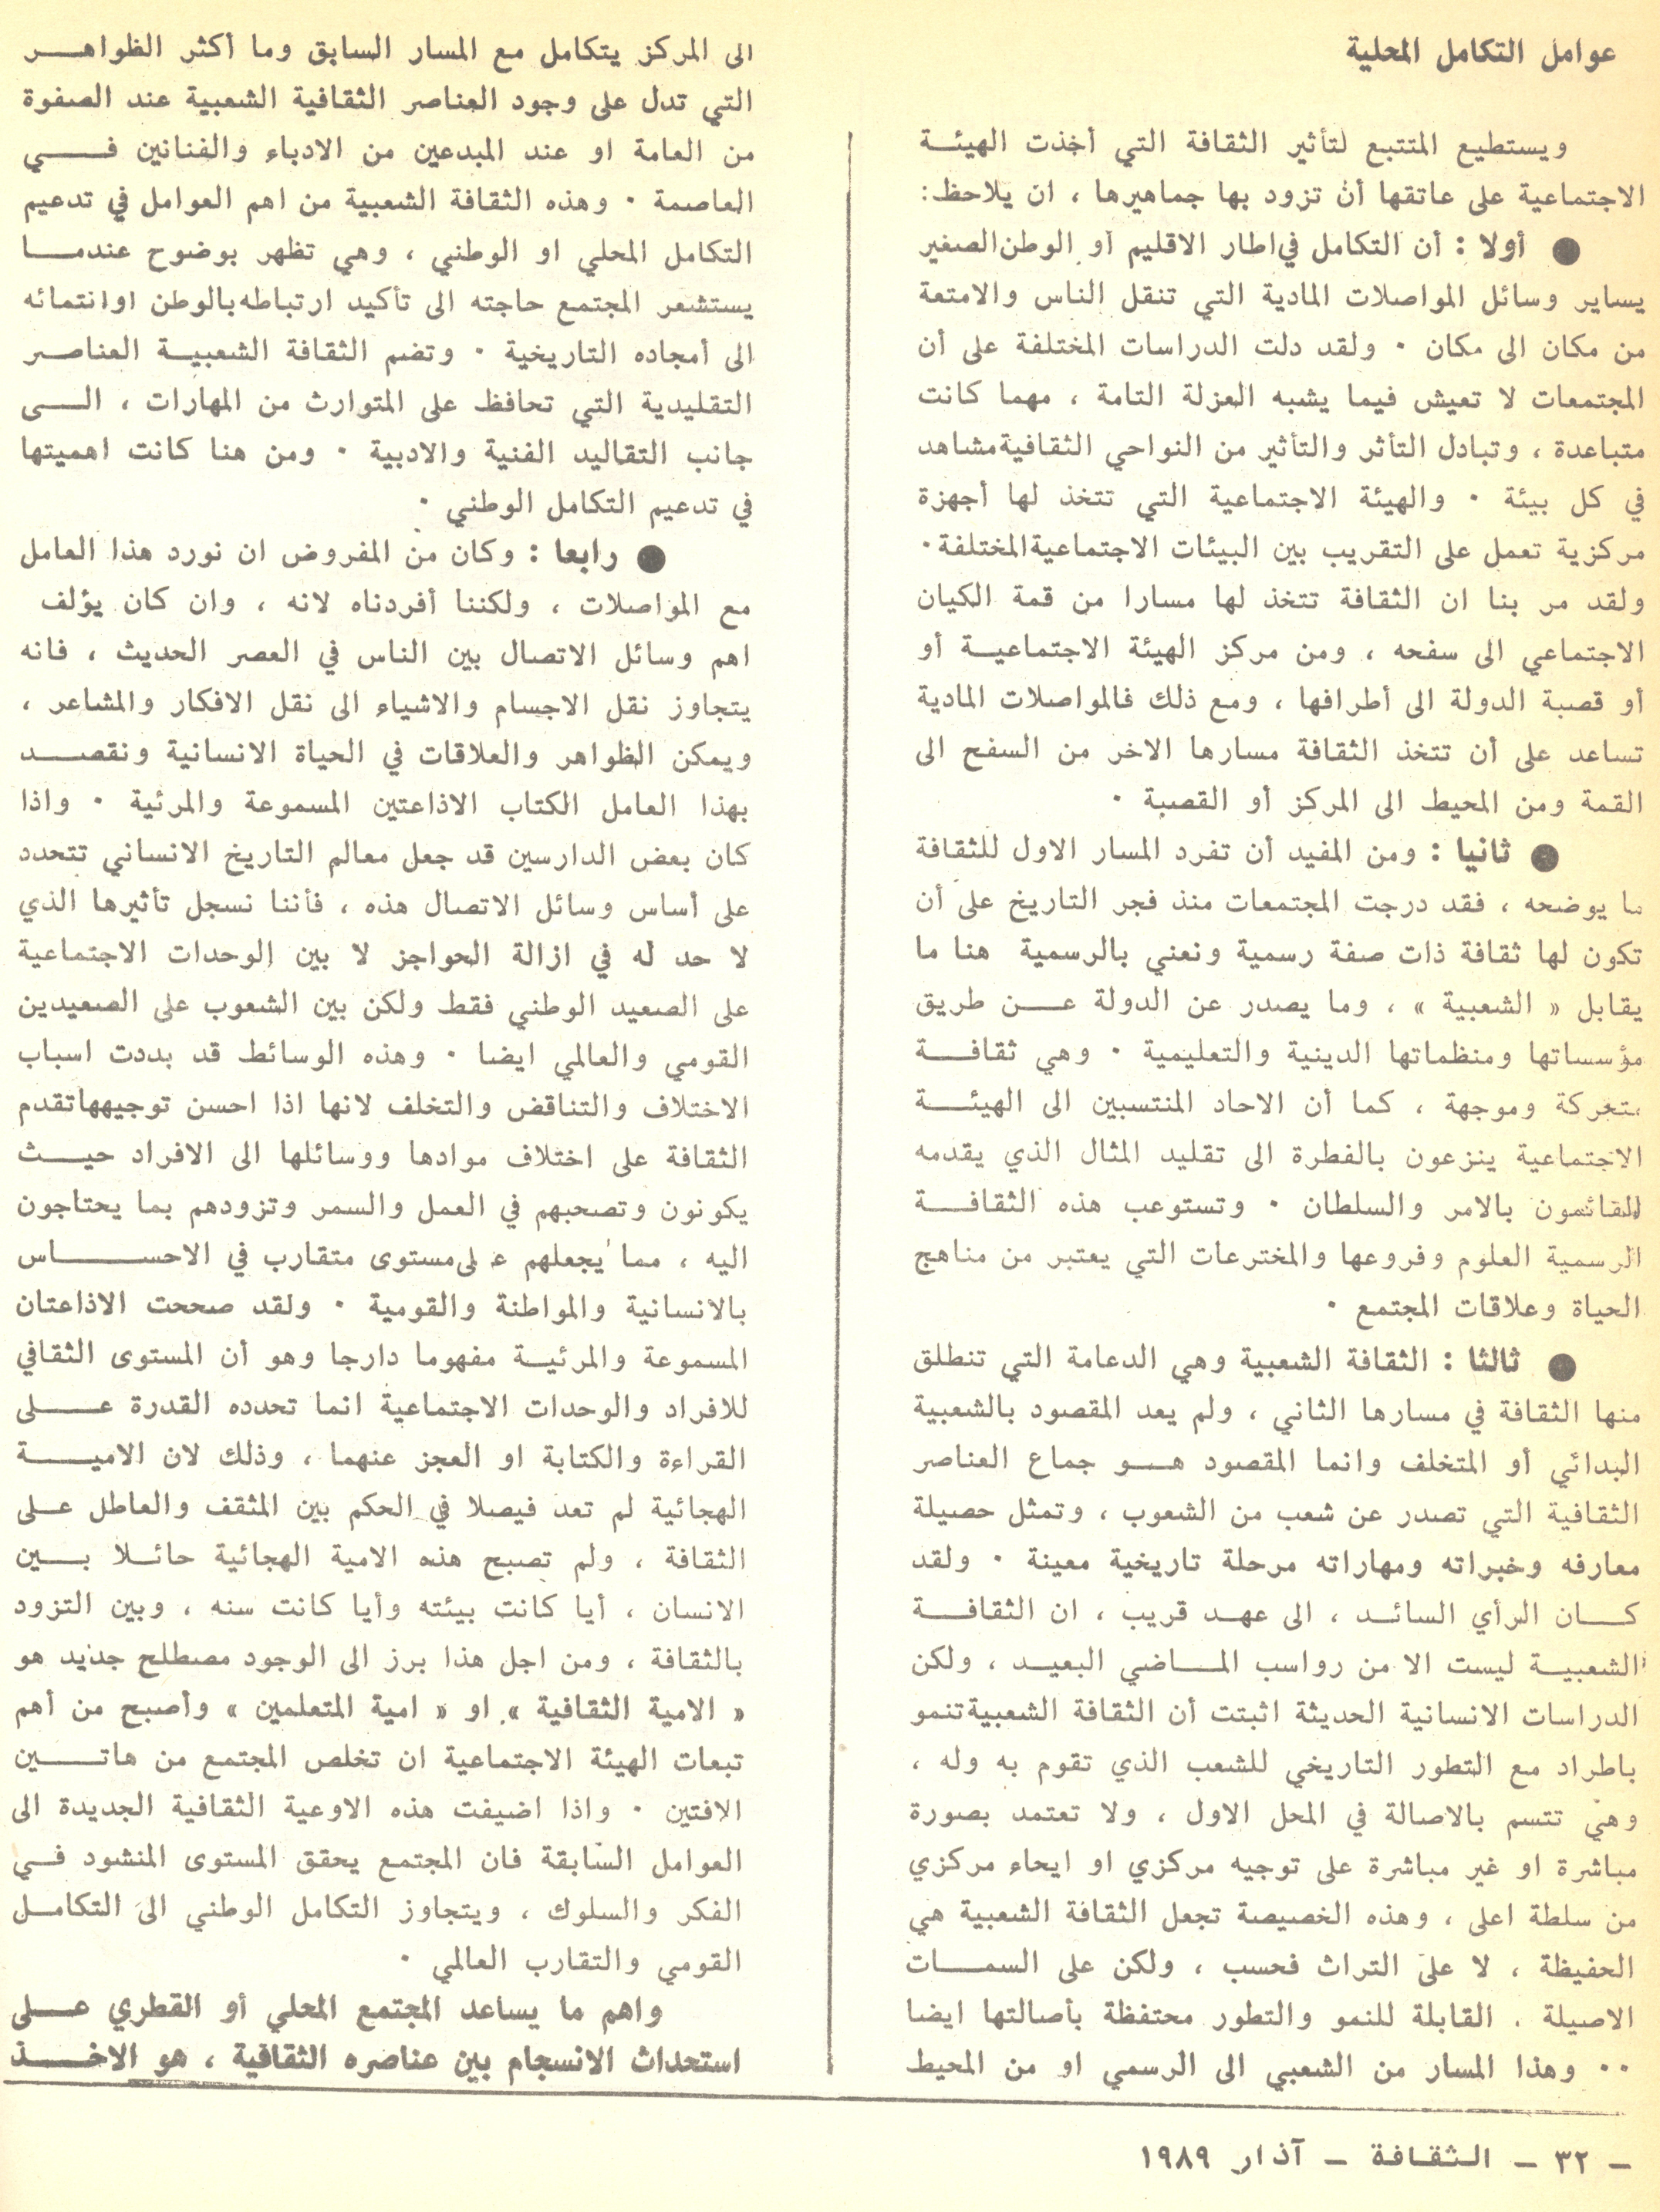 عوامل التكامل المحلية
ويستطيع المتتبع لتأثير الثقافة التي أخذت الهيئة
الاجتماعية على عاتقها أن تزود بها جماهيرها ، ان يلاحظ :
● أولا : أن التكامل في اطار الاقليم أو الوطن الصغير
يساير وسائل المواصلات المادية التي تنقل الناس والامتعة
من مكان الى مكان . ولقد دلت الدراسات المختلفة على أن
المجتمعات لا تعيش فيما يشبه العزلة التامة ، مهما كانت
متباعدة ، وتبادل التأثر والتأثير من النواحي الثقافية مشاهد
في كل بيئة . والهيئة الاجتماعية التي تتخذ لها أجهزة
مركزية تعمل على التقريب بين البيئات الاجتماعية المختلفة .
ولقد مر بنا ان الثقافة تتخذ لها مسارا من قمة الكيان
الاجتماعي الى سفحه ، ومن مركز الهيئة الاجتماعية أو
أو قصبة الدولة الى أطرافها ، ومع ذلك فالمواصلات المادية
تساعد على أن تتخذ الثقافة مسارها الاخر من السفح الى
القمة ومن المحيط الى المركز أو القصبة .
● ثانيا : ومن المفيد أن تفرد المسار الاول للثقافة
ما يوضحه ، فقد درجت المجتمعات منذ فجر التاريخ على أن
تكون لها ثقافة ذات صفة رسمية ونعني بالرسمية هنا ما
يقابل « الشعبية » ، وما يصدر عن الدولة عن طريق
مؤسساتها ومنظماتها الدينية والتعليمية . وهي ثقافة
متحركة وموجهة ، كما أن الاحاد المنتسبين الى الهيئة
الاجتماعية ينزعون بالفطرة الى تقليد المثال الذي يقدمه
القائمون بالامر والسلطان . وتستوعب هذه الثقافة
الرسمية العلوم وفروعها والمخترعات التي يعتبر من مناهج
الحياة وعلاقات المجتمع .
● ثالثا : الثقافة الشعبية وهي الدعامة التي تنطلق
منها الثقافة في مسارها الثاني ، ولم يعد المقصود بالشعبية
البدائي أو المتخلف وانما المقصود هو جماع العناصر
الثقافية التي تصدر عن شعب من الشعوب ، وتمثل حصيلة
معارفه وخبراته ومهاراته مرحلة تاريخية معينة . ولقد
كان الرأي السائد ، الى عهد قريب ، ان الثقافة
الشعبية ليست الا من رواسب الماضي البعيد ، ولكن
الدراسات الانسانية الحديثة اثبتت أن الثقافة الشعبية تنمو
باطراد مع التطور التاريخي للشعب الذي تقوم به وله ،
وهي تتسم بالاصالة في المحل الاول ، ولا تعتمد بصورة
مباشرة او غير مباشرة على توجيه مركزي او ايحاء مركزي
من سلطة اعلى ، وهذه الخصيصة تجعل الثقافة الشعبية هي
الحفيظة ، لا على التراث فحسب ، ولكن على السمات
الاصيلة . القابلة للنمو والتطور محتفظة بأصالتها ايضا
. . وهذا المسار من الشعبي الى الرسمي او من المحيط
الى المركز يتكامل مع المسار السابق وما أكثر الظواهر
التي تدل على وجود العناصر الثقافية الشعبية عند الصفوة
من العامة او عند المبدعين من الادباء والفنانين في
العاصمة . وهذه الثقافة الشعبية من اهم العوامل في تدعيم
التكامل المحلي او الوطني ، وهي تظهر بوضوح عندما
يستشعر المجتمع حاجته الى تأكيد ارتباطه بالوطن او انتمائه
الى أمجاده التاريخية . وتضم الثقافة الشعبية العناصر
التقليدية التي تحافظ على المتوارث من المهارات ، الى
جانب التقاليد الفنية والادبية . ومن هنا كانت اهميتها
في تدعيم التكامل الوطني .
● رابعا : وكان من المفروض ان نورد هذا العامل
مع المواصلات ، ولكننا أفردناه لانه ، وان كان يؤلف
اهم وسائل الاتصال بين الناس في العصر الحديث ، فانه
يتجاوز نقل الاجسام والاشياء الى نقل الافكار والمشاعر ،
ويمكن الظواهر والعلاقات في الحياة الانسانية ونقصد
بهذا العامل الكتاب الاذاعتين المسموعة والمرئية . واذا
كان بعض الدارسين قد جعل معالم التاريخ الانساني تتحدد
على أساس وسائل الاتصال هذه ، فأننا نسجل تأثيرها الذي
لا حد له في ازالة الحواجز لا بين الوحدات الاجتماعية
على الصعيد الوطني فقط ولكن بين الشعوب على الصعيدين
القومي والعالمي ايضا . وهذه الوسائط قد بددت اسباب
الاختلاف والتناقض والتخلف لانها اذا احسن توجيهها تقدم
الثقافة على اختلاف موادها ووسائلها الى الافراد حيث
يكونون وتصحبهم في العمل والسمر وتزودهم بما يحتاجون
اليه ، مما يجعلهم على مستوى متقارب في الاحساس
بالانسانية والمواطنة والقومية . ولقد صححت الاذاعتان
المسموعة والمرئية مفهوما دارجا وهو أن المستوى الثقافي
للافراد والوحدات الاجتماعية انما تحدده القدرة على
القراءة والكتابة او العجز عنهما ، وذلك لان الامية
الهجائية لم تعد فيصلا في الحكم بين المثقف والعاطل على
الثقافة ، ولم تصبح هذه الامية الهجائية حائلا بين
الانسان ، أيا كانت بيئته وأيا كانت سنه ، وبين التزود
بالثقافة ، ومن اجل هذا برز الى الوجود مصطلح جديد هو
« الامية الثقافية » او « امية المتعلمين » وأصبح من أهم
تبعات الهيئة الاجتماعية ان تخلص المجتمع من هاتين
الافتين . واذا اضيفت هذه الاوعية الثقافية الجديدة الى
العوامل السابقة فان المجتمع يحقق المستوى المنشود في
الفكر والسلوك ، ويتجاوز التكامل الوطني الى التكامل
القومي والتقارب العالمي .
واهم ما يساعد المجتمع المحلي أو القطري على
استحداث الانسجام بين عناصره الثقافية ، هو الاخذ
– ٣٢ – الثقافة – آذار ١٩٨٩